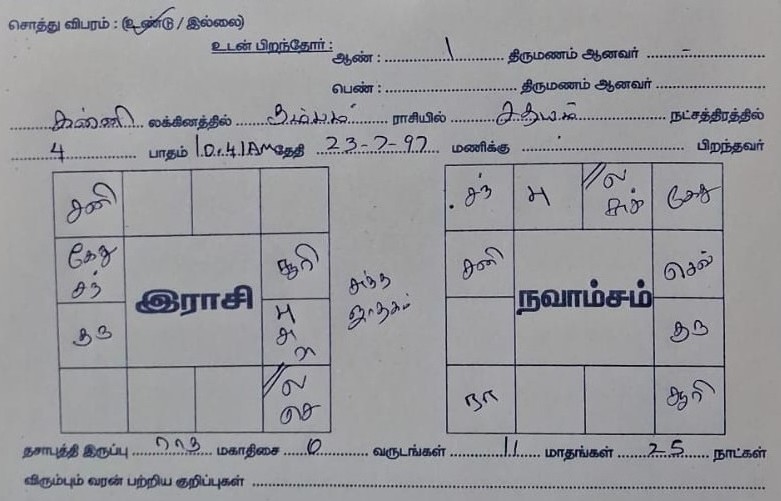 சொத்து விபரம் : (உண்டு / இல்லை)
உடன் பிறந்தோர் : ஆண் : 1 திருமணம் ஆனவர் -
பெண் : திருமணம் ஆனவர்
கன்னி லக்கினத்தில் கும்பம் ராசியில் சதயம் நட்சத்திரத்தில்
4 பாதம் 10.41AM தேதி 23-7-97 மணிக்கு பிறந்தவர்
சனி
கேது
சந்
சூரி
குரு
இராசி
பு
சு
ரா
ல
செ
சுத்த
ஜாதகம்
சந் பு ல
சுக் கேது
சனி
செவ்
நவாம்சம்
குரு
ரா
சூரி
தசாபுத்தி இருப்பு ராகு மகாதிசை 0 வருடங்கள் 11 மாதங்கள் 25 நாட்கள்
விரும்பும் வரன் பற்றிய குறிப்புகள்